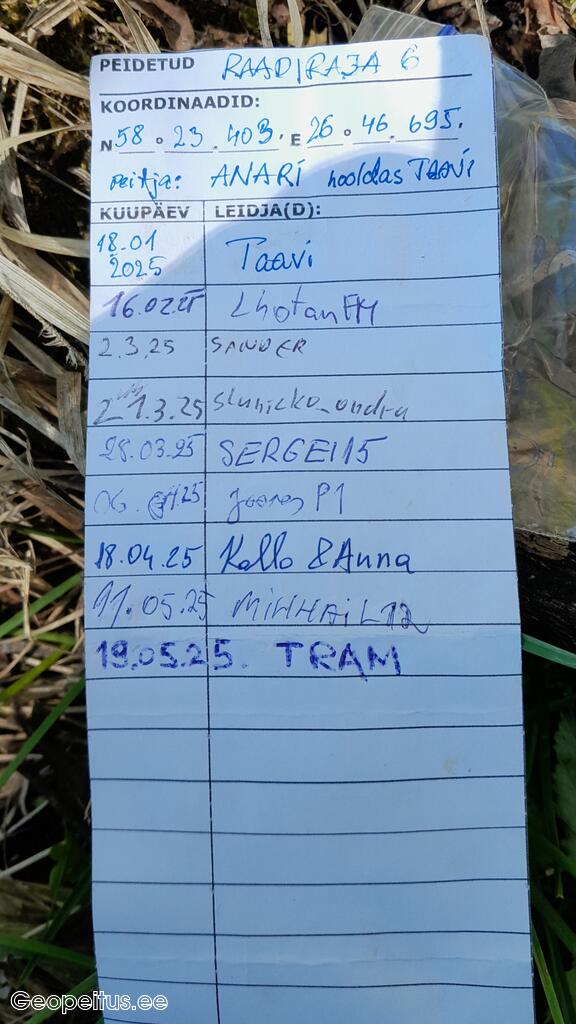 PEIDETUD RAADIRAJA 6
KOORDINAADID:
N 58 ° 23 . 403 ' E 26 ° 46 . 695 '
peitja: ANARI hooldas TAAVI
KUUPÄEV LEIDJA(D):
18.01
2025 Taavi
16.02.25 LhotanFM
2.3.25 SANDER
21.3.25 slunicko_ondra
28.03.25 SERGEI15
06. 25 P1
18.04.25 Kallo & Anna
11.05.25 MIHHAIL12
19.05.25. TRAM
Geopeitus.ee